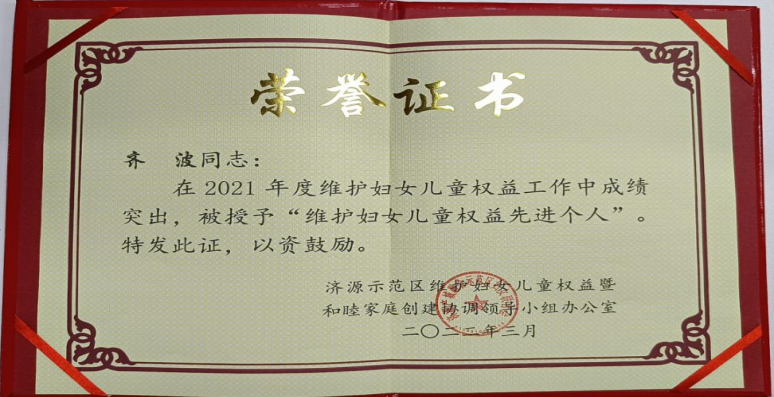 荣誉证书
齐 波同志：
在2021年度维护妇女儿童权益工作中成绩
突出，被授予“维护妇女儿童权益先进个人”。
特发此证，以资鼓励。
济源示范区维护妇女儿童权益暨
和睦家庭创建协调领导小组办公室
二〇二二年三月